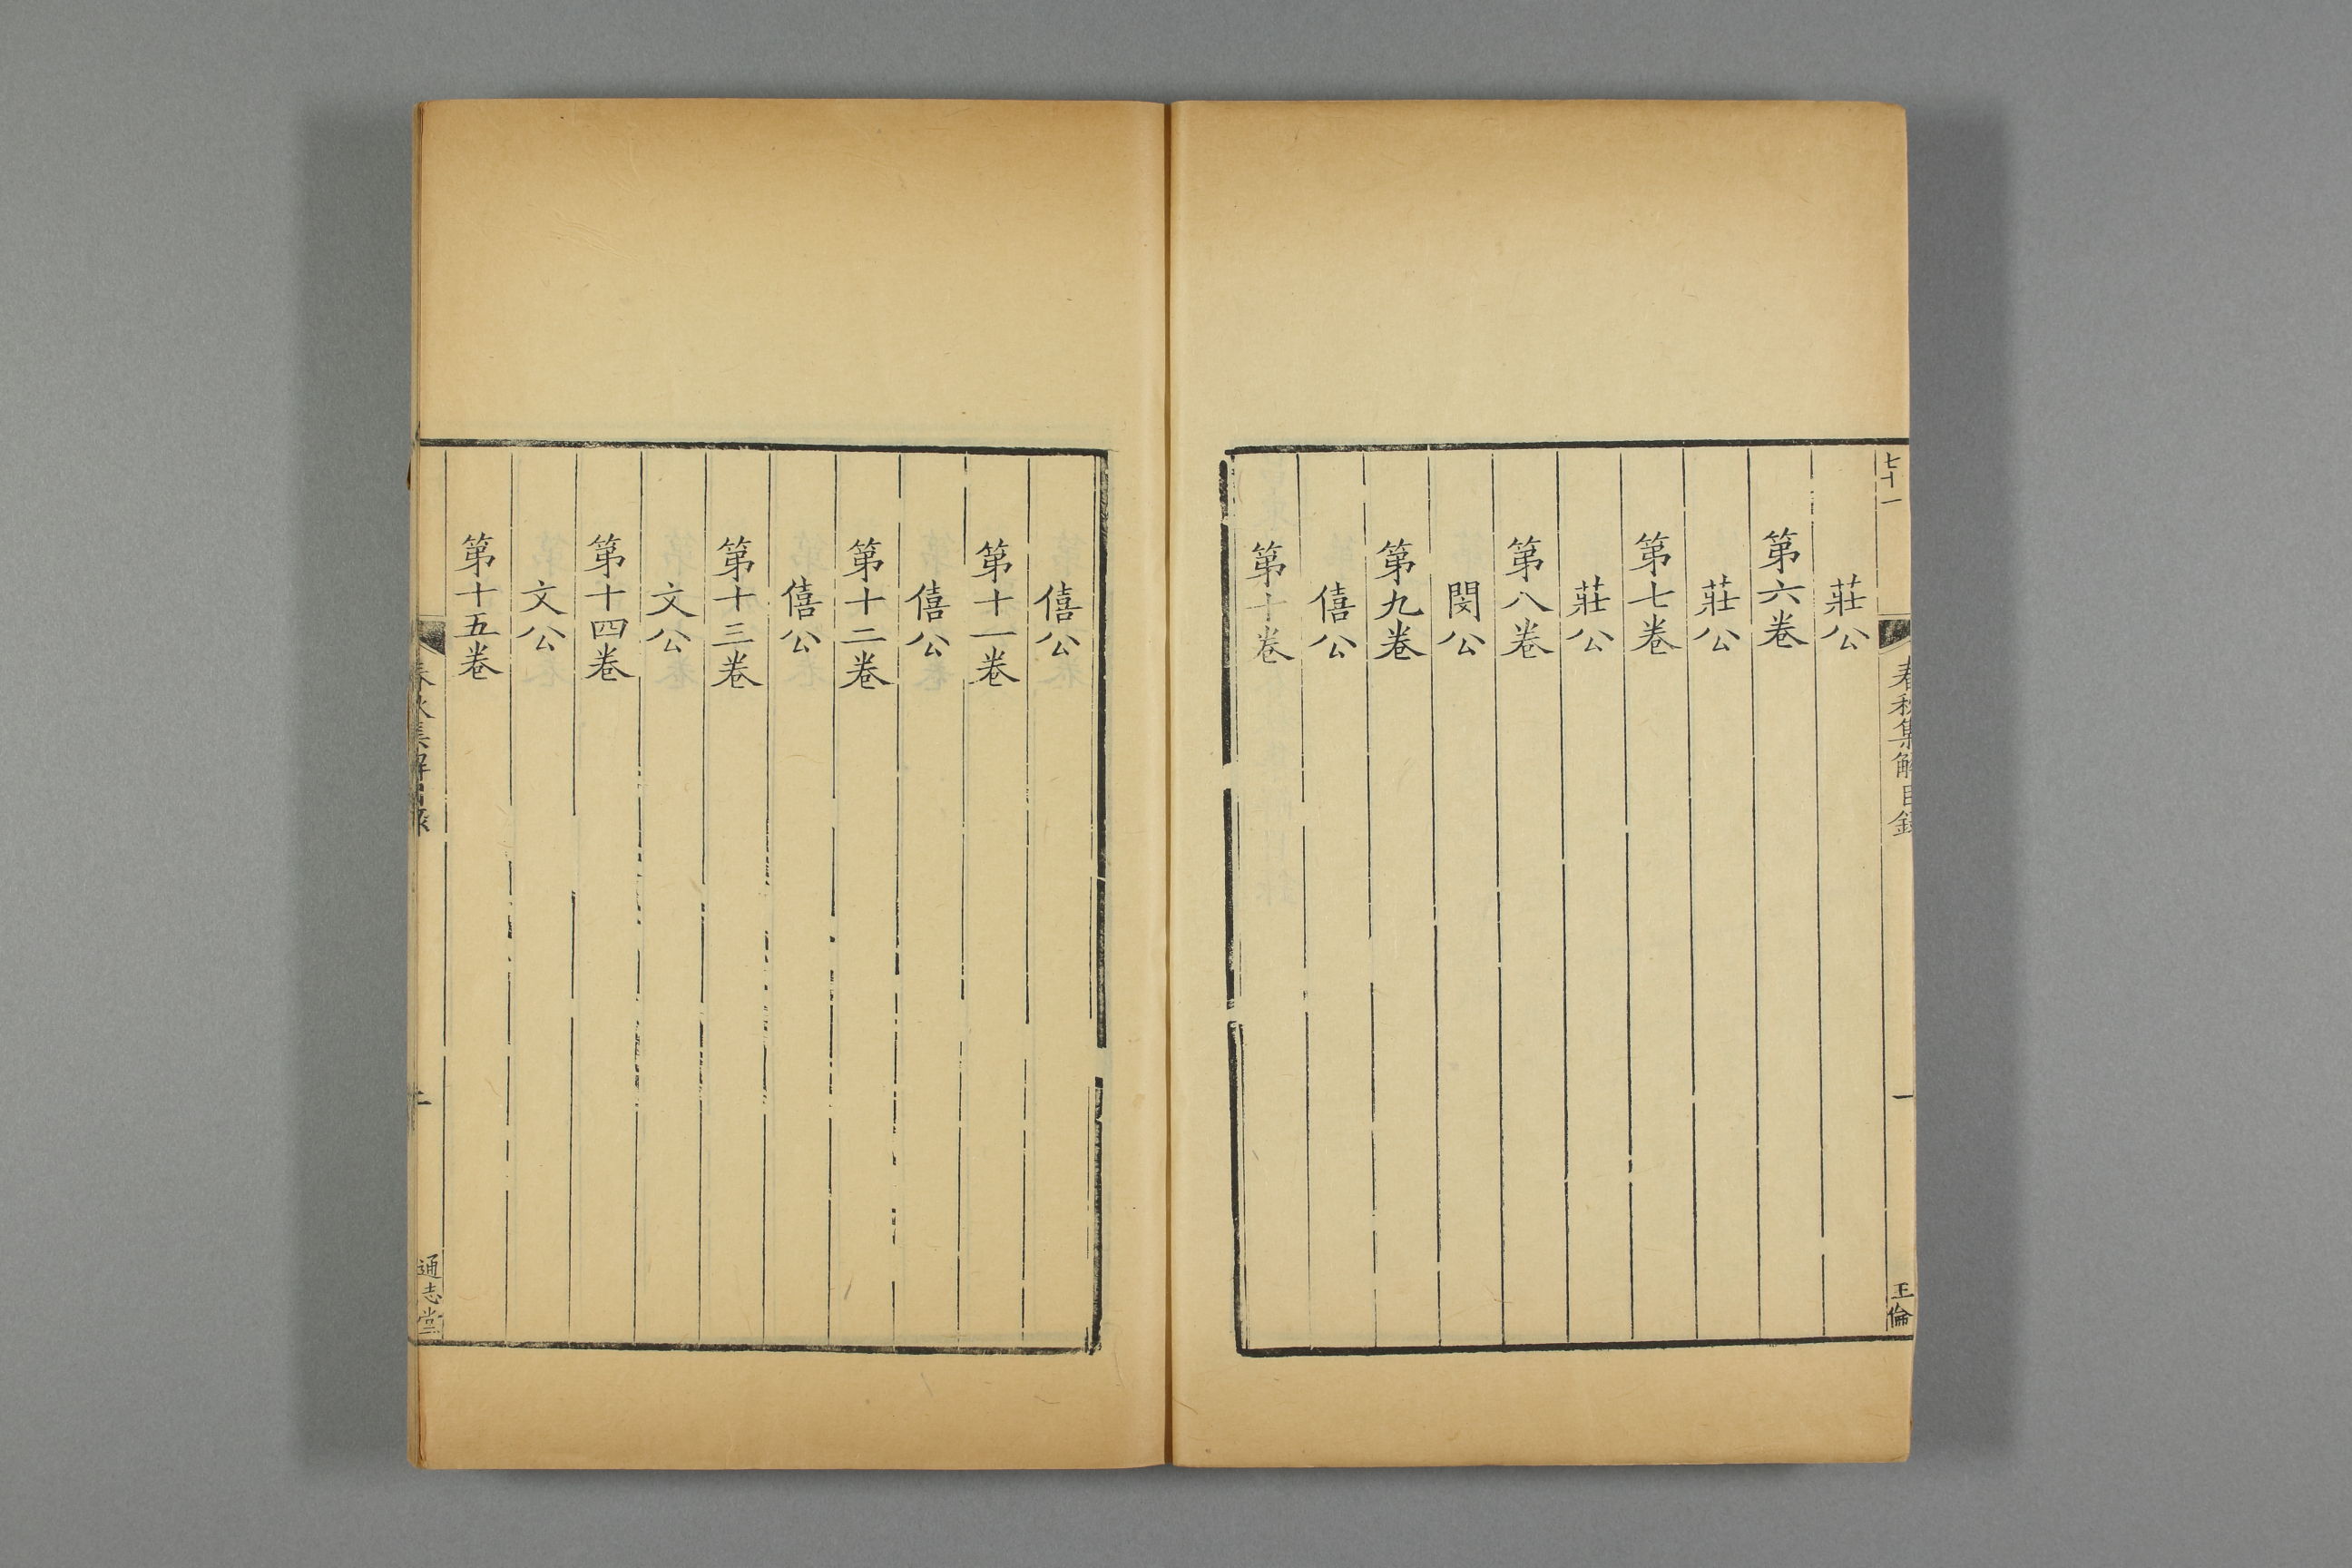 七十一
春秋集解目錄
一
王倫
莊公
第六卷
莊公
第七卷
莊公
第八卷
閔公
第九卷
僖公
第十卷
僖公
第十一卷
僖公
第十二卷
僖公
第十三卷
文公
第十四卷
文公
第十五卷
春秋集解目錄
二
通志堂